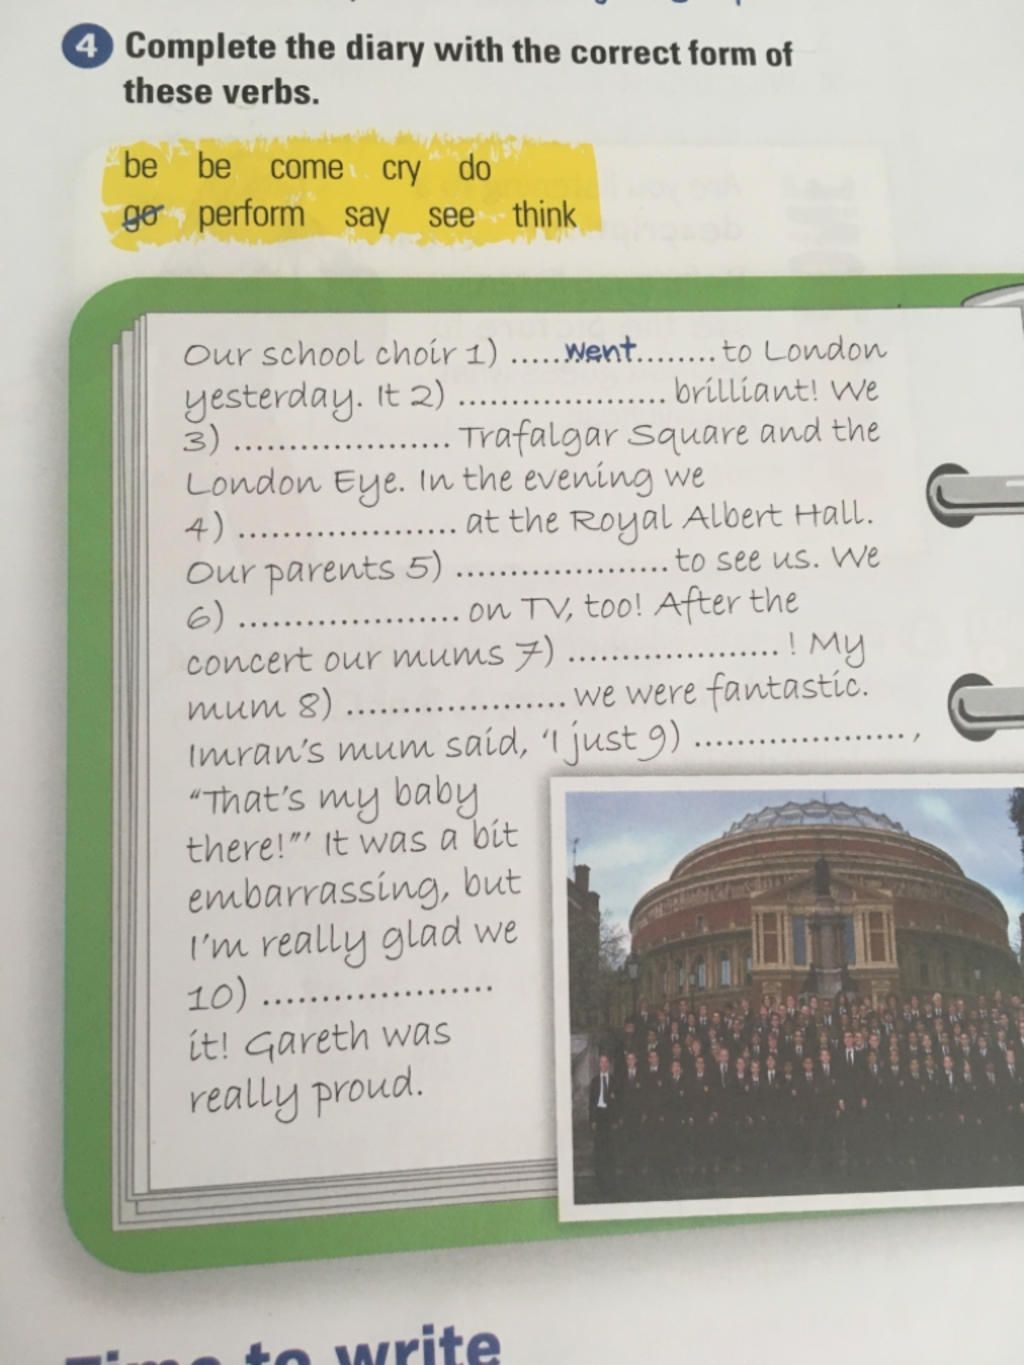 4 Complete the diary with the correct form of
these verbs.
be be come cry do
go perform say see think
Our school choir 1) .....went........ to London
yesterday. It 2) .................... brilliant! We
3) .................... Trafalgar Square and the
London Eye. In the evening we
4) .................... at the Royal Albert Hall.
Our parents 5) .................... to see us. We
6) .................... on TV, too! After the
concert our mums 7) .................... ! My
mum 8) .................... we were fantastic.
Imran's mum said, 'I just 9) .................... ,
"That's my baby
there!"' It was a bit
embarrassing, but
I'm really glad we
10) ....................
it! Gareth was
really proud.
Time to write